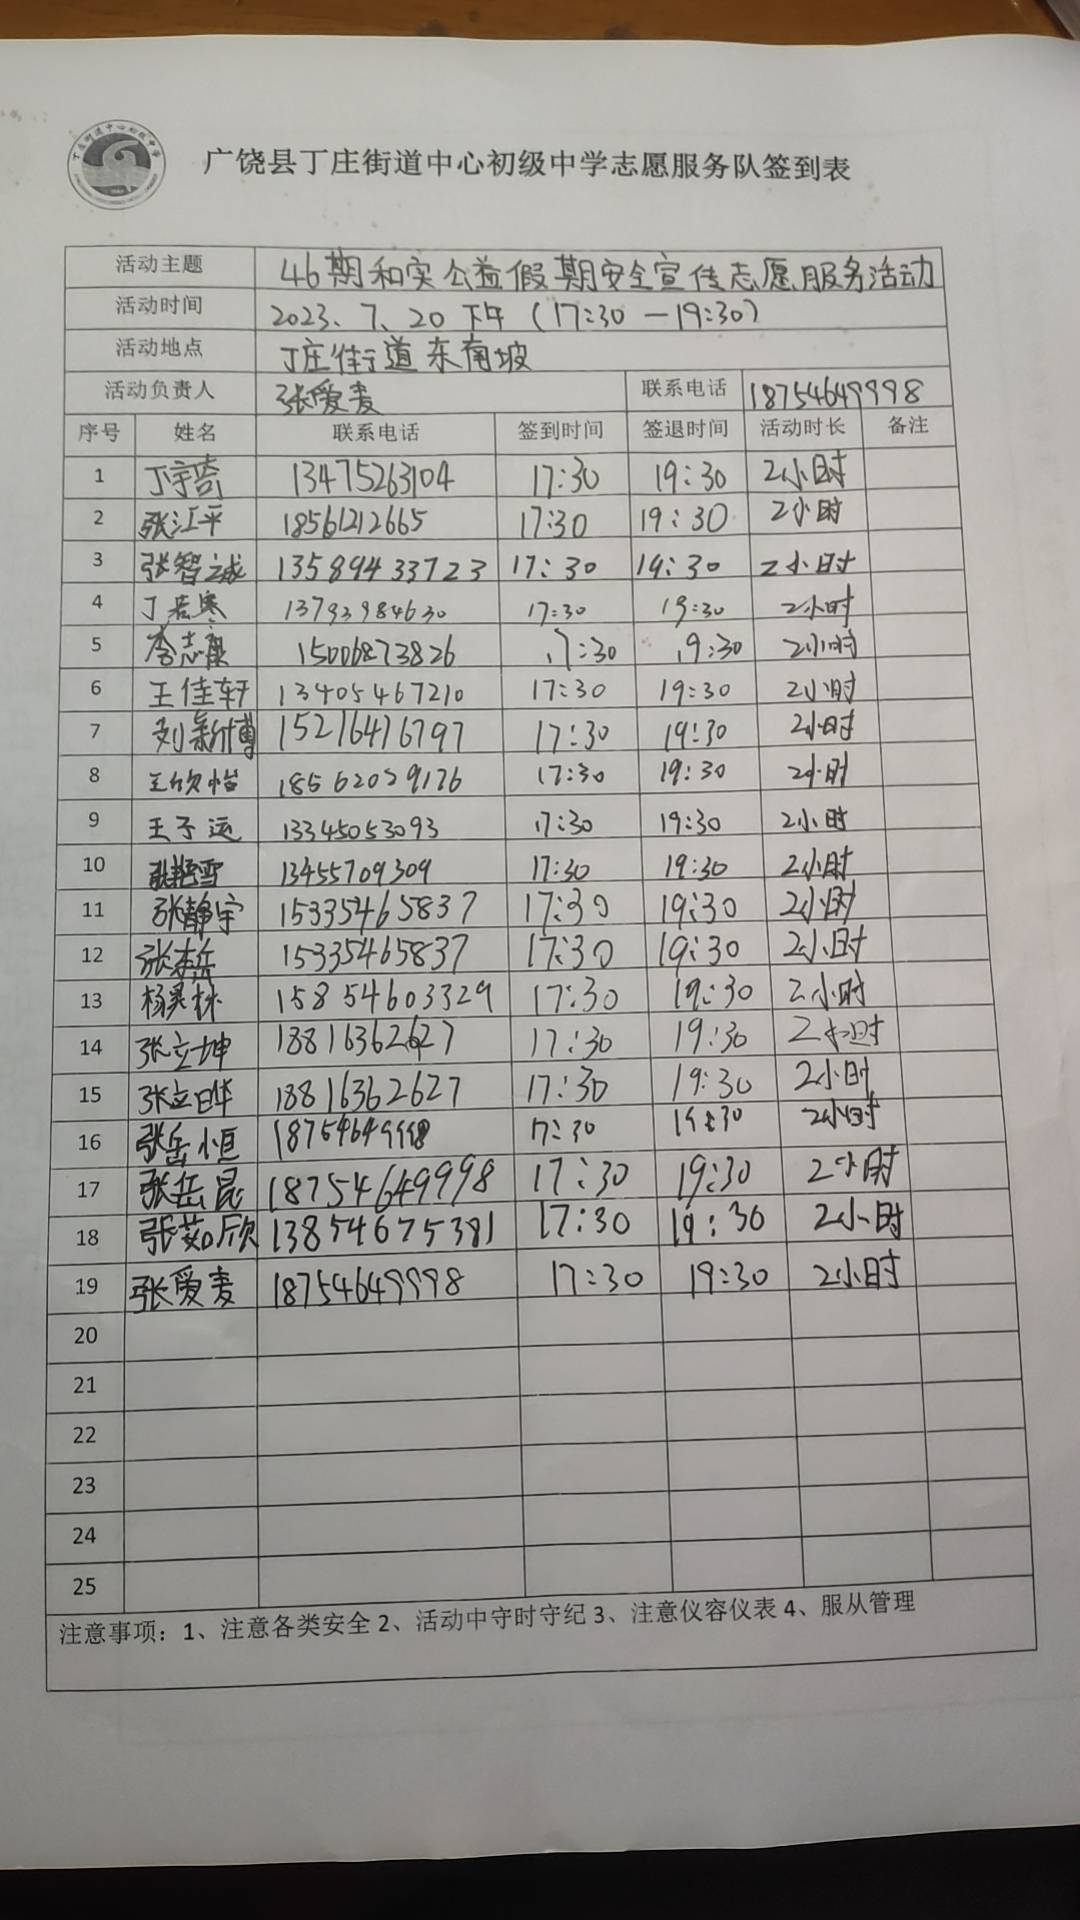 丁庄街道中心初级中学
广饶县丁庄街道中心初级中学志愿服务队签到表
活动主题 46期和实公益假期安全宣传志愿服务活动
活动时间 2023、7、20 下午（17:30－19:30）
活动地点 丁庄街道东南坡
活动负责人 张爱麦 联系电话 18754649998
序号 姓名 联系电话 签到时间 签退时间 活动时长 备注
1 丁宇奇 13475263104 17:30 19:30 2小时
2 张江平 18561212665 17:30 19:30 2小时
3 张智诚 13589433723 17:30 19:30 2小时
4 丁若寒 13793984630 17:30 19:30 2小时
5 李志康 15006873826 17:30 19:30 2小时
6 王佳轩 13405467210 17:30 19:30 2小时
7 刘新博 15216416797 17:30 19:30 2小时
8 王欣怡 18562029176 17:30 19:30 2小时
9 王子远 13345053093 17:30 19:30 2小时
10 13455709309 17:30 19:30 2小时
11 张静宇 15335465837 17:30 19:30 2小时
12 张 15335465837 17:30 19:30 2小时
13 杨昊林 15854603329 17:30 19:30 2小时
14 张立坤 18816362627 17:30 19:30 2小时
15 张立晔 18816362627 17:30 19:30 2小时
16 张岳恒 18754649998 17:30 19:30 2小时
17 张岳昆 18754649998 17:30 19:30 2小时
18 张茹欣 13854675381 17:30 19:30 2小时
19 张爱麦 18754649998 17:30 19:30 2小时
20
21
22
23
24
25
注意事项：1、注意各类安全 2、活动中守时守纪 3、注意仪容仪表 4、服从管理